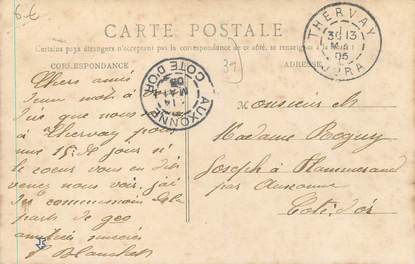 6-E
CARTE POSTALE
Certains pays étrangers n'acceptent pas la correspondance de ce côté, se renseigner à la
CORRESPONDANCE
ADRESSE
31
THERVAY
13
05
JURA
AUXONNE
COTE D'OR
14
MAI
05
Chers amis
mot à
que nous
à Thervay pour
une 15 de jours si
le coeur vous en dit
venez nous voir. j'ai
les commissions de la
part de geo
amitiés
Blanchet
Monsieur et
Madame Roguy
Joseph à Flammerand
par Auxonne
Cote d'or